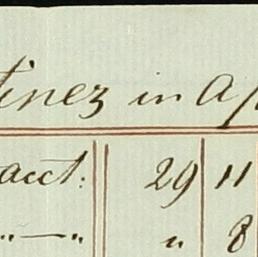 tinez in Ap
acct: 29 11
"—" " 8